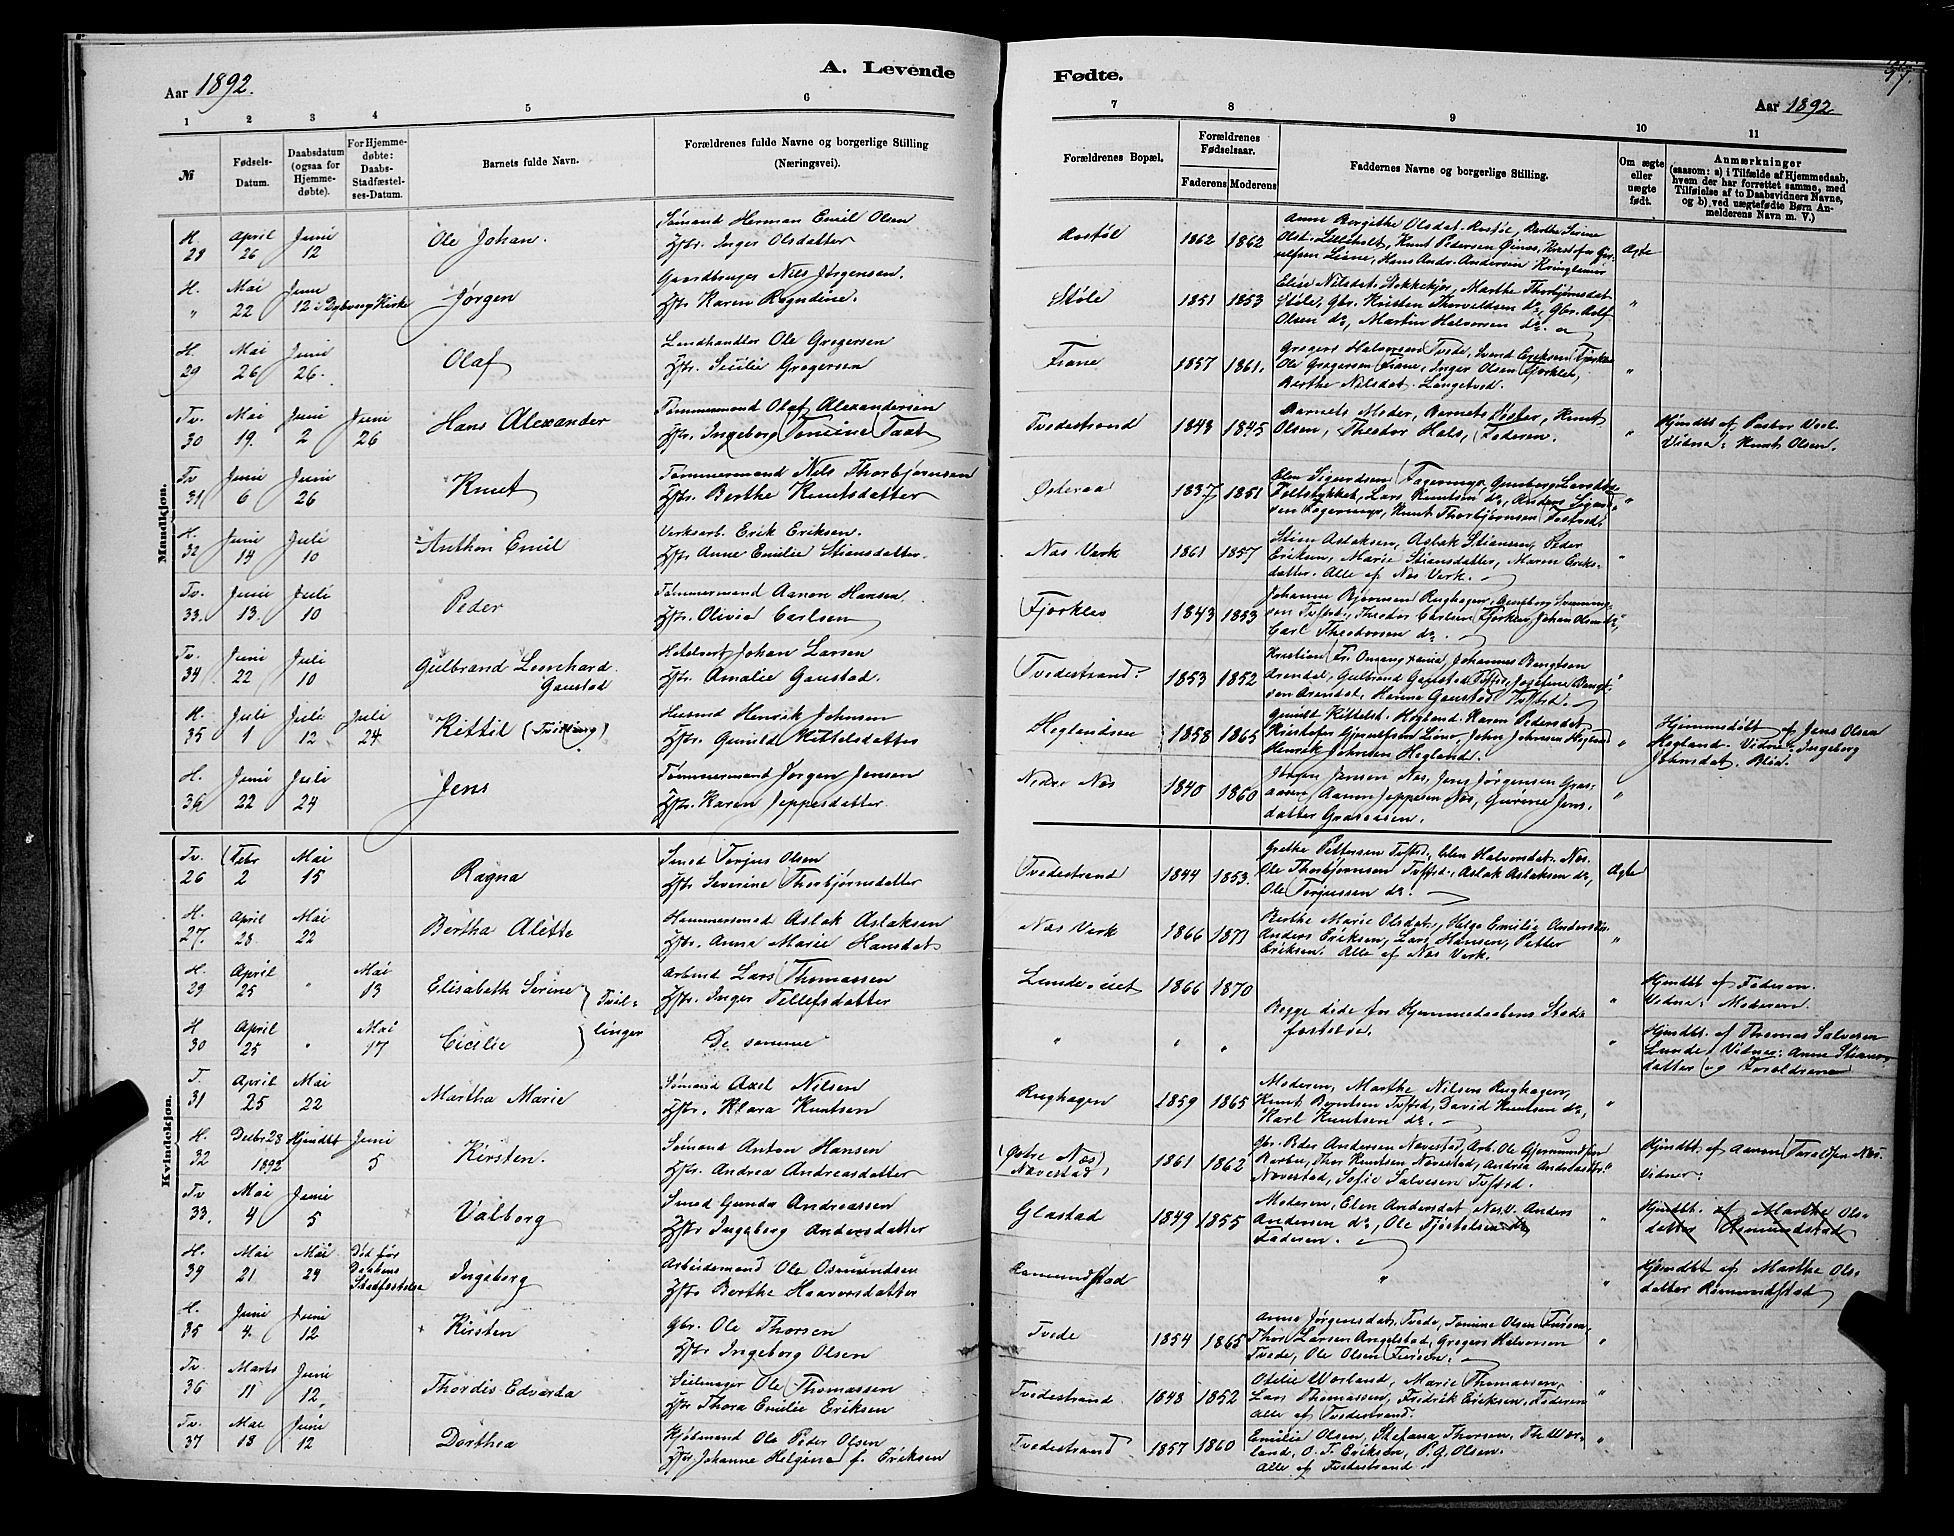 Aar 1892.
A. Levende
1 2 3 4 5 6
№
Fødsels-
Datum.
Daabsdatum
(ogsaa for
Hjemme-
døbte).
For Hjemme-
døbte:
Daabs-
Stadfæstel-
ses-Datum.
Barnets fulde Navn.
Forældrenes fulde Navne og borgerlige Stilling
(Næringsvei).
Mandkjøn.
H. April Juni Ole Johan. Sømand Herman Emil Olsen
28 26 12 Hstr. Inger Olsdatter
H. Mai Juni Jørgen Gaardbruger Nils Jørgensen.
" 22 12 i Dybvaag Kirke Hstr. Karen Regndine.
H. Mai Juni Olaf Landhandler Ole Gregersen
29 26 26. Hstr. Sicilie Gregersen
Tv. Mai Juni Juni Hans Alexander Tømmermand Olaf Alexandersen
30 19. 2 26 Hstr. Ingeborg Tomine
Tv Juni Juni Knut Tømmermand Nils Thorbjørnsen
31 6 26 Hstr. Berthe Knutsdatter
H. Juni Juli Anthon Emil Verksarb. Erik Eriksen.
32 14 10 Hstr. Anne Emilie Stiansdatter.
Tv. Juni Juli Peder Tømmermand Aanon Hansen.
33. 13. 10 Hstr. Olivia Carlsen
Tv. Juni Juli Gulbrand Leonhard Johan Larsen
34 22 10 Gaustad Hstr. Amalie Gaustad.
H. Juli Juli Juli Kittil (Tvilling) Husmd Henrik Johnsen
35 1 12 24 Hstr. Gunild Kittelsdatter
H. Juni Juli Jens Tømmermand Jørgen Jensen
36 22 24 Hstr. Karen Jeppesdatter.
Kvindekjøn.
Tv. Febr Mai Ragna Smed Torjus Olsen
26 2 15 Hstr Severine Thorbjørnsdatter
H. April Mai Bertha Alette Hammersmed Aslak Aslaksen
27. 28. 22 Hstr. Anna Marie Hansdat
H. April Mai Elisabeth Serine Arbmd Lars Thomassen
29 25 " 13 Tvil- Hstr. Inger Tellefsdatter
H April Mai Cicilie linger De samme
30 25 " 17
T. April Mai Martha Marie Sømand Axel Nilsen
31 25 22 Hstr. Klara Knutsen
H. Decbr 28 Hjemdbt Juni Kirsten. Sømand Anton Hansen
32 1892 5 Hstr. Andrea Andreasdatter
Tv Mai Juni Valborg Smed Gunda Andreassen
33. 4 5 Hstr Ingeborg Andersdatter
H. Mai Mai Død før Ingeborg Arbeidsmand Ole Osmundsen
39 21 24 Daabens Stadfæstelse Hstr Berthe Haavorsdatter
H. Juni Juni Kirsten Gbr. Ole Thorsen
35 4. 12 Hstr Ingeborg Olsen
Tv. Marts Juni Thordis Edvarda Seilmager Ole Thomassen
36 11 12, Hstr Thora Emilie Eriksen
Tv. Mai Juni Dorthea Kjøbmand Ole Peder Olsen
37 13 12 Hstr Johanne Helgine f. Eriksen
Fødte.
Aar 1892.
7 8 9 10 11
Forældrenes Bopæl.
Forældrenes
Fødselsaar.
Faderens Moderens
Faddernes Navne og borgerlige Stilling.
Om ægte
eller
uægte
født.
Anmærkninger
(saasom: a) i Tilfælde af Hjemmedaab,
hvem der har forrettet samme, med
Tilføielse af to Daabsvidners Navne,
og b) ved uægtefødte Børn An-
melderens Navn m. V.)
1862 1862 Anne Bergithe Olsdat. Berthe Serine
Olsd. Lilleholt, Knut Pedersen
Liane, Hans Andr. Andersen Ægte
Støle 1851 1853 Elise Nilsdat. Marthe Thorbjørnsdat
Støle, Gbr. Kristen Thorvaldsen do, Gbr.
Olsen do, Martin Halvorsen do. "
Fiane 1857 1861. Gregers Halvorsen Tvede, Svend Eriksen
Ole Gregersen Fiane, Inger Olsen Fjorklev,
Berthe Nilsdat. Langebrd. "
Tvedestrand 1843 1845 Barnets Moder, Barnets Søster, Knut
Olsen, Theodor Hals, Faderen. "
Hjmdbt af Pastor
Vidne: Knut Olsen.
Østeraa 1837 1851 Elen Sigurdsen Fagermyr,
Lars Knutsen do, Anders
Fagermyr, Knut Thorbjørnsen "
Næs Verk 1861 1857 Stian Aslaksen, Aslak Stiansen, Peder
Eriksen, Marie Stiansdatter, Maren Eriks-
datter. Alle af Næs Verk. "
Fjorklev 1843 1853 Johanne Bjørnsen Rughagen,
Theodor Carlsen Fjorklev, Johan Olsen do,
Carl Theodorsen do.
Tvedestrand. 1853 1852 Johannes Bengtsen
Arendal, Gulbrand Gaustad Tvstd, Josefine Bengt-
sen Arendal, Hanna Gaustad Tvstsd. "
Heglandseie 1858 1865 Gunild Kittelsd. Hegland. Karen Pedersdat.
John Johnsen Hegland
Henrik Johnsen Hegland. "
Hjemmedøbt af Jens Olsen
Hegland. Vidne: Ingeborg
Johnsdat.
Nedre Næs 1840 1860 Jørgen Jensen Næs, Jens Jørgensen Gras-
aasen, Aanon Jeppesen Næs, Gurine Jens-
datter Grasaasen. "
Tvedestrand 1844 1853. Grethe Pettersen Tvstsd., Elen Halvorsdat. Næs.
Ole Thorbjørnsen Tvstsd., Aslak Aslaksen do,
Ole Torjussen do. Ægte
Næs Verk 1866 1871 Berthe Marie Olsdat., Helga Emilie
Anders Eriksen, Lars Hansen, Petter
Eriksen. Alle af Næs Verk. "
Lunde-eiet 1866 1870 Begge døde før Hjemmedaabens Stad-
fæstelse. "
Hjmdbt af Faderen.
Vidne: Moderen
" " " "
Hjmdbt. af Thomas Salvesen
Lunde, Vidne: Anne Stians-
datter og Forældrene
Rughagen 1859 1865 Moderen, Marthe Nilsen Rughagen,
Knut Berntsen Tvstsd, David Knutsen do,
Karl Knutsen do. "
(Østre Næs)
Navestad, 1861 1862 Gbr. Peder Andersen Navestad, Arb. Ole
Thor Knutsen Navestad, Andrea Andreasdtr.
Navestad, Sofie Salvesen Tvstsd. "
Hjmdbt. af Aanon Næs.
Vidner:
Glastad 1849 1855 Moderen, Elen Andersdat Næs V. Anders
Andersen do, Ole do
Faderen. "
Hjmdbt. af Marthe Ols-
datter Osmundstad
" "
Hjemdbt af Marthe Ols-
datter
Tvede 1854 1865 Anne Jørgensdat, Tvede, Tomine Olsen
Thor Larsen Angelstad, Gregers Halvorsen
Tvede, Ole Olsen "
Tvedestrand. 1848 1852 Otilie Worland, Marie Thomassen,
Lars Thomassen, Fredrik Eriksen, Faderen
Alle af Tvedestrand. "
Tvedestrand 1857 1860 Emilie Olsen, Stefana Thorsen, Th. Wor-
land, O. T. Eriksen, P. G. Olsen.
Alle af Tvedestrand "